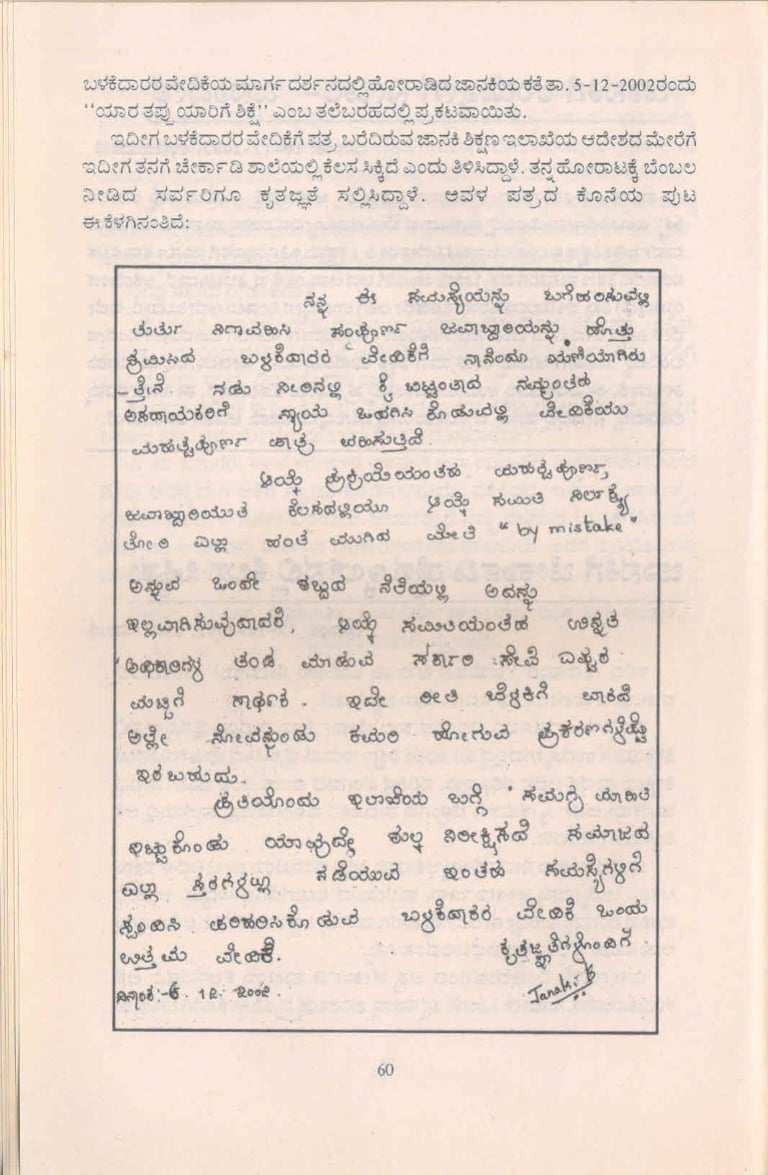 ಬಳಕೆದಾರರ ವೇದಿಕೆಯ ಮಾರ್ಗದರ್ಶನದಲ್ಲಿ ಹೋರಾಡಿದ ಜಾನಕಿಯ ಕತೆ ತಾ. 5-12-2002ರಂದು
“ಯಾರ ತಪ್ಪು ಯಾರಿಗೆ ಶಿಕ್ಷೆ” ಎಂಬ ತಲೆಬರಹದಲ್ಲಿ ಪ್ರಕಟವಾಯಿತು.
ಇದೀಗ ಬಳಕೆದಾರರ ವೇದಿಕೆಗೆ ಪತ್ರ ಬರೆದಿರುವ ಜಾನಕಿ ಶಿಕ್ಷಣ ಇಲಾಖೆಯ ಆದೇಶದ ಮೇರೆಗೆ
ಇದೀಗ ತನಗೆ ಚೇರ್ಕಾಡಿ ಶಾಲೆಯಲ್ಲಿ ಕೆಲಸ ಸಿಕ್ಕಿದೆ ಎಂದು ತಿಳಿಸಿದ್ದಾಳೆ. ತನ್ನ ಹೋರಾಟಕ್ಕೆ ಬೆಂಬಲ
ನೀಡಿದ ಸರ್ವರಿಗೂ ಕೃತಜ್ಞತೆ ಸಲ್ಲಿಸಿದ್ದಾಳೆ. ಅವಳ ಪತ್ರದ ಕೊನೆಯ ಪುಟ
ಈ ಕೆಳಗಿನಂತಿದೆ:
ನನ್ನ ಈ ಸಮಸ್ಯೆಯನ್ನು ಬಗೆಹರಿಸುವಲ್ಲಿ
ತುರ್ತು ನಿಗಾವಹಿಸಿ ಸಂಪೂರ್ಣ ಜವಾಬ್ದಾರಿಯನ್ನು ಹೊತ್ತು
ಶ್ರಮಿಸಿದ ಬಳಕೆದಾರರ ವೇದಿಕೆಗೆ ನಾನೆಂದೂ ಋಣಿಯಾಗಿರು
-ತ್ತೇನೆ ನಡು ನೀರಿನಲ್ಲಿ ಕೈ ಬಿಟ್ಟಂತಾದ ನಮ್ಮಂತಹ
ಅಸಹಾಯಕರಿಗೆ ನ್ಯಾಯ ಒದಗಿಸಿ ಕೊಡುವಲ್ಲಿ ವೇದಿಕೆಯು
ಮಹತ್ವಪೂರ್ಣ ಪಾತ್ರ ವಹಿಸುತ್ತದೆ.
ಆಯ್ಕೆ ಪ್ರಕ್ರಿಯೆಯಂತಹ ಮಹತ್ವಪೂರ್ಣ
ಜವಾಬ್ದಾರಿಯುತ ಕೆಲಸದಲ್ಲಿಯೂ ಆಯ್ಕೆ ಸಮಿತಿ ನಿರ್ಲಕ್ಷ್ಯ
ತೋರಿ ಎಲ್ಲಾ ಹಂತ ಮುಗಿದ ಮೇಲೆ “by mistake”
ಅನ್ನುವ ಒಂದೇ ಶಬ್ದದ ನೆಲೆಯಲ್ಲಿ ಅದನ್ನು
ಇಲ್ಲವಾಗಿಸುವುದಾದರೆ, ಆಯ್ಕೆ ಸಮಿತಿಯಂತಹ ಉನ್ನತ
ಅಧಿಕಾರಿಗಳ ತಂಡ ಮಾಡುವ ಸರ್ಕಾರಿ ಸೇವೆ ಎಷ್ಟರ
ಮಟ್ಟಿಗೆ ಸಾರ್ಥಕ. ಇದೇ ರೀತಿ ಬೆಳಕಿಗೆ ಬಾರದೆ
ಅಲ್ಲೇ ನೋವನ್ನುಂಡು ಕಮರಿ ಹೋಗುವ ಪ್ರಕರಣಗಳೆಷ್ಟೋ
ಇರಬಹುದು.
ಪ್ರತಿಯೊಂದು ಇಲಾಖೆಯ ಬಗ್ಗೆ ಸಮಗ್ರ ಮಾಹಿತಿ
ಇಟ್ಟುಕೊಂಡು ಯಾವುದೇ ಶುಲ್ಕ ನಿರೀಕ್ಷಿಸದೆ ಸಮಾಜದ
ಎಲ್ಲಾ ಸ್ತರಗಳಲ್ಲೂ ನಡೆಯುವ ಇಂತಹ ಸಮಸ್ಯೆಗಳಿಗೆ
ಸ್ಪಂದಿಸಿ ಪರಿಹರಿಸಿಕೊಡುವ ಬಳಕೆದಾರರ ವೇದಿಕೆ ಒಂದು
ಉತ್ತಮ ವೇದಿಕೆ. ಕೃತಜ್ಞತೆಗಳೊಂದಿಗೆ
ದಿನಾಂಕ:-6. 12. 2002. Janaki B
60